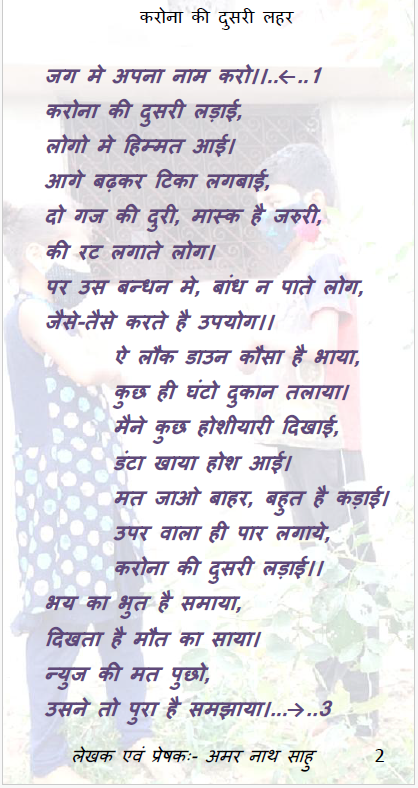 करोना की दुसरी लहर
जग मे अपना नाम करो।।..←..1
करोना की दुसरी लड़ाई,
लोगो मे हिम्मत आई।
आगे बढ़कर टिका लगबाई,
दो गज की दुरी, मास्क है जरुरी,
की रट लगाते लोग।
पर उस बन्धन मे, बांध न पाते लोग,
जैसे-तैसे करते है उपयोग।।
ऐ लौक डाउन कौसा है भाया,
कुछ ही घंटो दुकान तलाया।
मैने कुछ होशीयारी दिखाई,
डंटा खाया होश आई।
मत जाओ बाहर, बहुत है कड़ाई।
उपर वाला ही पार लगाये,
करोना की दुसरी लड़ाई।।
भय का भुत है समाया,
दिखता है मौत का साया।
न्युज की मत पुछो,
उसने तो पुरा है समझाया।...→..3
लेखक एवं प्रेषकः- अमर नाथ साहु 2